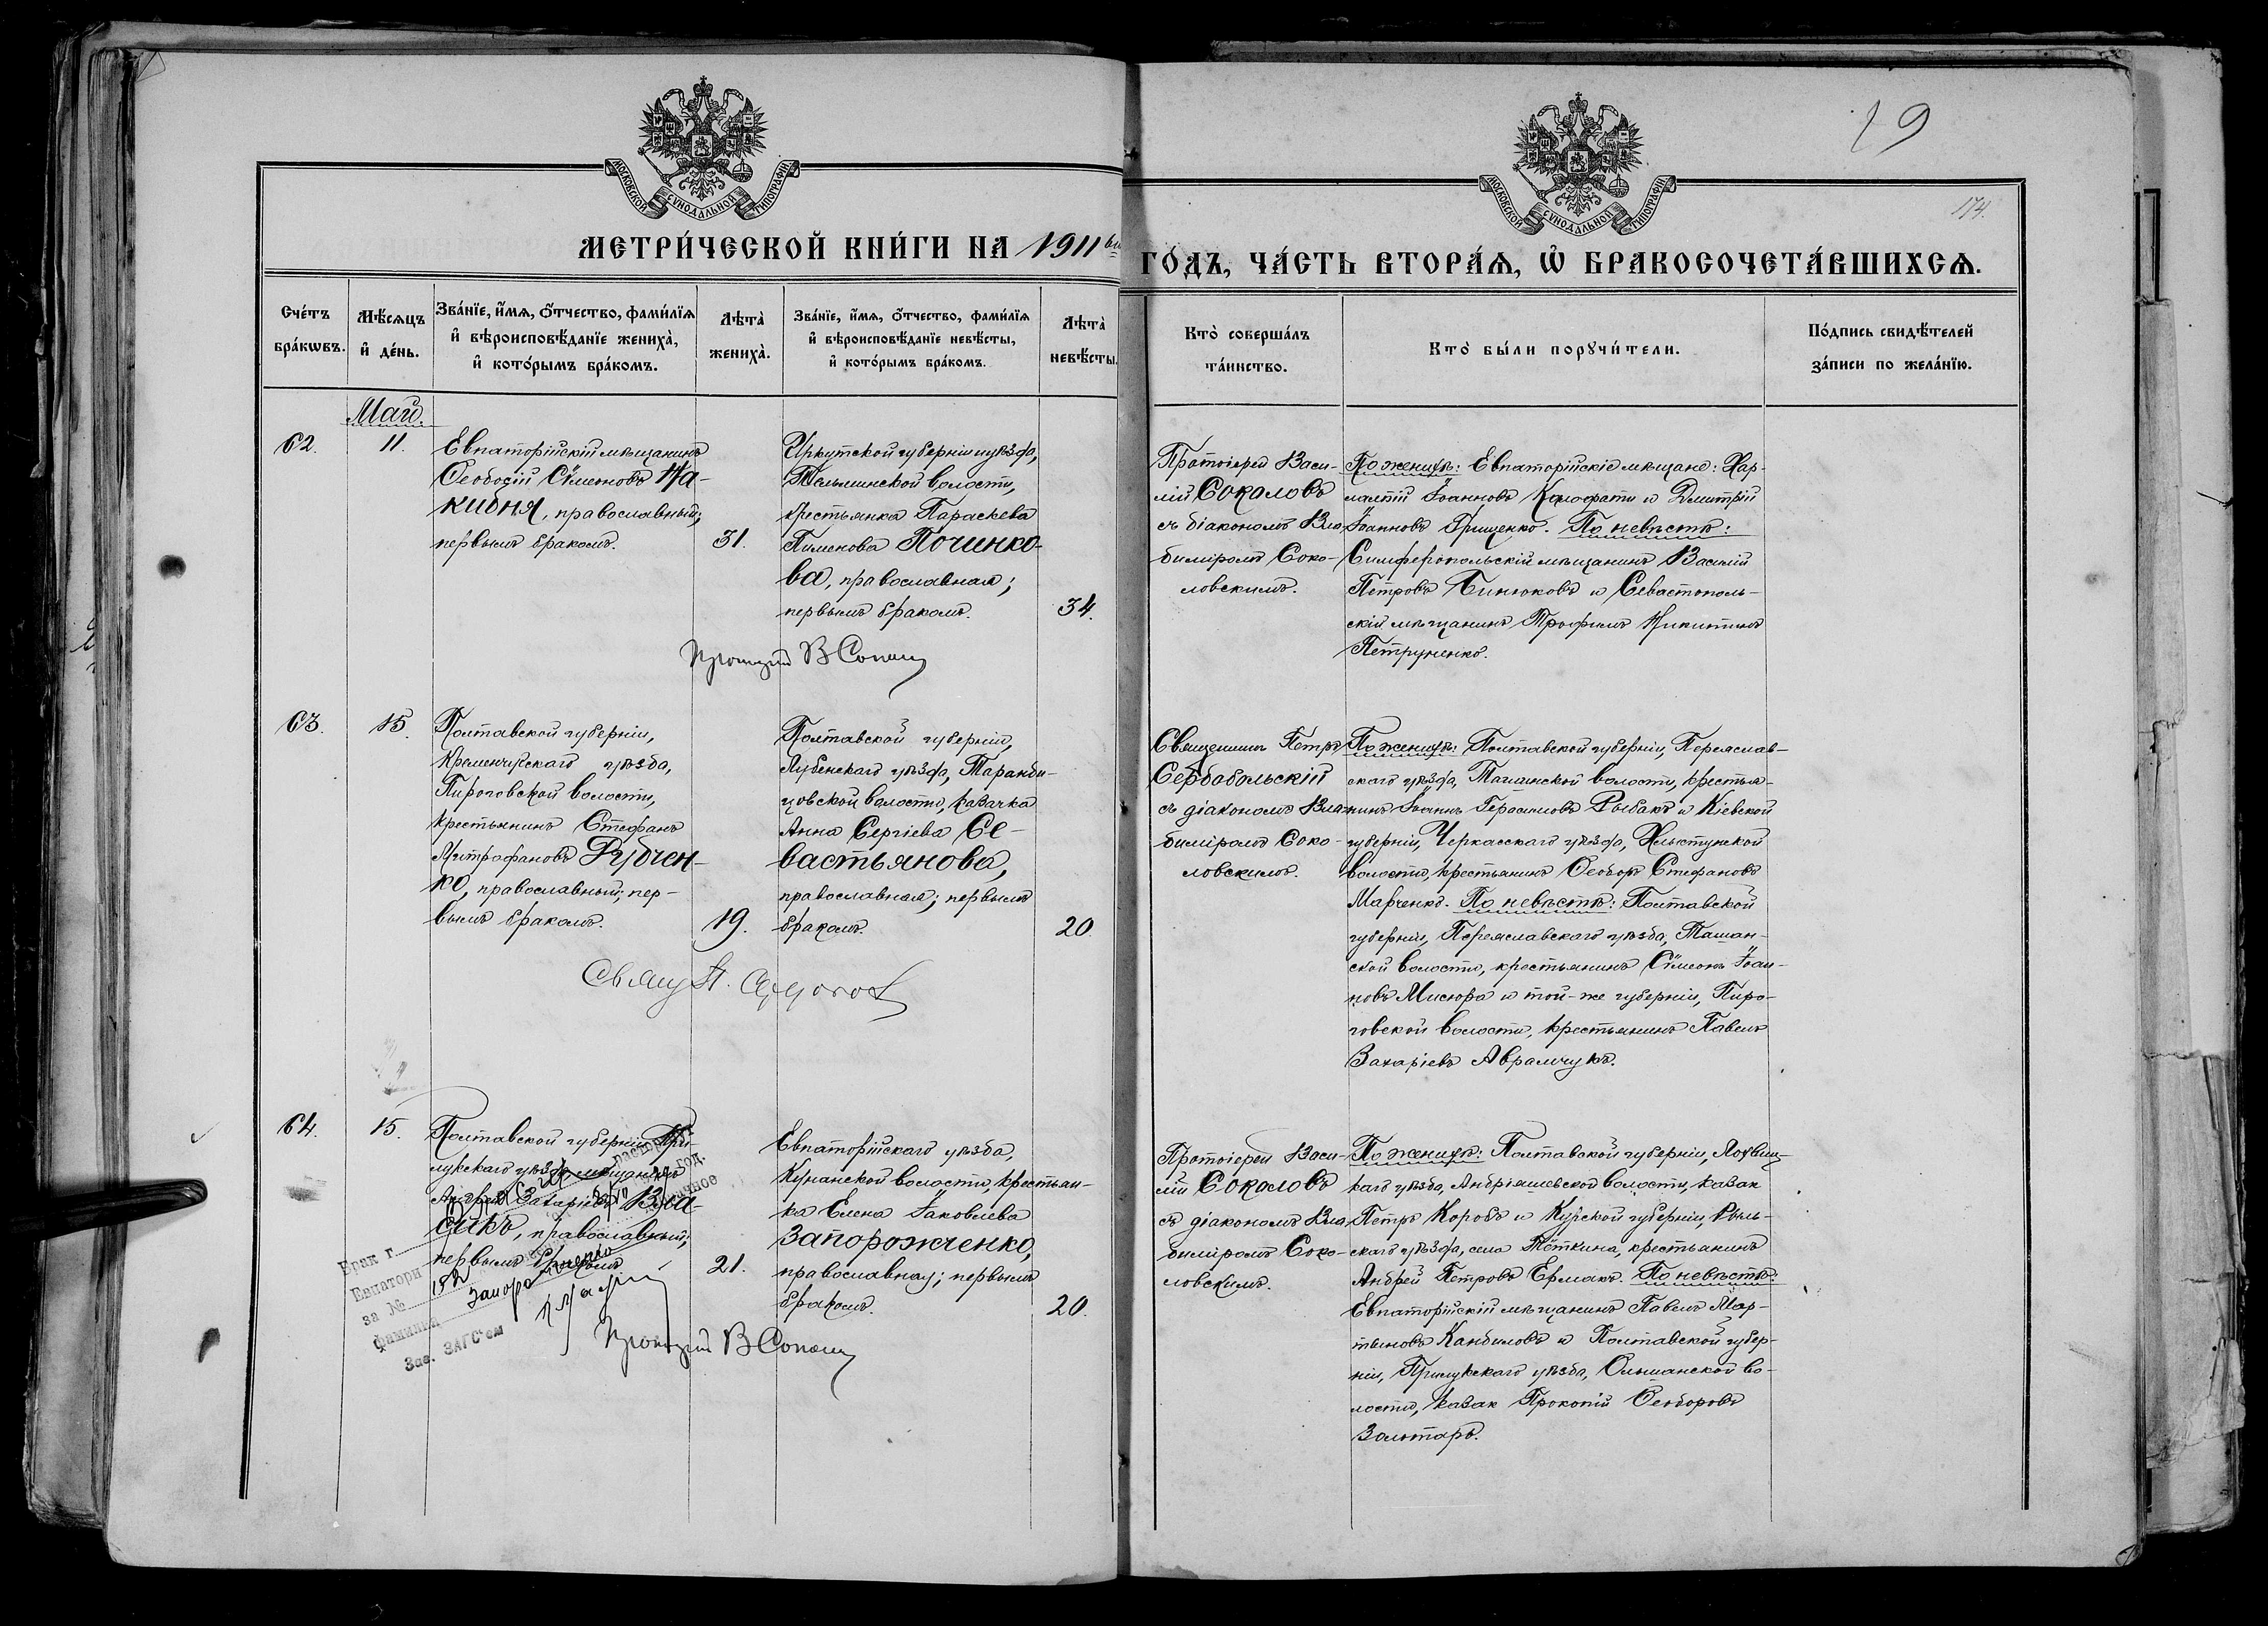 19
174.
МОСКОВСКОЙ СѴНОДАЛЬНОЙ ТИПОГРАФІИ
МОСКОВСКОЙ СѴНОДАЛЬНОЙ ТИПОГРАФІИ
МЕТРИ́ЧЕСКОЙ КНИ́ГИ НА 1911
ГО́ДЪ, ЧА́СТЬ ВТОРА́Ѧ, Ѽ БРАКОСОЧЕТА́ВШИХСѦ.
Сче́тъ
бра́кωвъ.
Мѣ́сѧцъ
и҆ де́нь.
Зва́нїе, и҆́мѧ, ѻ҆́тчество, фами́лїѧ
и҆ вѣроисповѣ́данїе жениха̀,
и҆ кото́рымъ бра́комъ.
Лѣта̀
жениха̀.
Зва́нїе, и҆́мѧ, ѻ҆́тчество, фами́лїѧ
и҆ вѣроисповѣ́данїе невѣ́сты,
и҆ кото́рымъ бра́комъ.
Лѣта̀
невѣ́сты.
Кто̀ соверша́лъ
та́инство.
Кто̀ бы́ли порꙋчи́тели.
По́дпись свидѣ́телей
за́писи по жела́нїю.
Май.
62.
11.
Евпаторійскій мѣщанинъ
Ѳеодосій Сѵмеоновъ На-
кибня, православный;
первымъ бракомъ.
31.
Иркутской губерніи уѣзда,
Тельминской волости,
крестьянка Параскева
Пименова Починко-
ва, православная;
первымъ бракомъ.
34.
Протоіерей Васи-
лій Соколовъ
съ діакономъ Вла-
диміромъ Соко-
ловскимъ.
По женихѣ: Евпаторійскіе мѣщане: Хар-
лампій Іоанновъ Калафати и Димитрій
Іоанновъ Грищенко. По невѣстѣ:
Симферопольскій мѣщанинъ Василій
Петровъ Бинюковъ и Севастополь-
скій мѣщанинъ Трофимъ Никитинъ
Петруненко.
63.
15.
Полтавской губерніи,
Кременчугскаго уѣзда,
Пироговской волости,
крестьянинъ Стефанъ
Митрофановъ Дубчен-
ко, православный; пер-
вымъ бракомъ.
19.
Полтавской губерніи,
Лубенскаго уѣзда, Таранди-
цовской волости, казачка
Анна Сергіева Се-
вастьянова,
православная; первымъ
бракомъ.
20.
Священникъ Петръ
Сердобольскій
съ діакономъ Вла-
диміромъ Соко-
ловскимъ.
По женихѣ: Полтавской губерніи, Переяслав-
скаго уѣзда, Ташанской волости, крестья-
нинъ Іоаннъ Герасимовъ Рыбакъ и Кіевской
губерніи, Черкасскаго уѣзда, Хлыстунской
волости, крестьянинъ Ѳеодоръ Стефановъ
Марченко. По невѣстѣ: Полтавской
губерніи, Переяславскаго уѣзда, Ташан-
ской волости, крестьянинъ Сѵмеонъ Іоан-
новъ Мисюра и той-же губерніи, Пиро-
говской волости, крестьянинъ Павелъ
Захаріевъ Аврамчукъ.
64.
15.
Полтавской губерніи, При-
лукскаго уѣзда мѣщанинъ
Андрей Захаріевъ Вла-
сикъ, православный;
первымъ бракомъ
21.
Евпаторійскаго уѣзда,
Кунанской волости, крестьян-
ка Елена Іаковлева
Запорожченко,
православная; первымъ
бракомъ.
20.
Протоіерей Васи-
лій Соколовъ
съ діакономъ Вла-
диміромъ Соко-
ловскимъ.
По женихѣ: Полтавской губерніи, Лохвиц-
каго уѣзда, Андріяшевской волости, казак
Петръ Коробъ и Курской губерніи, Рыль-
скаго уѣзда, села Тёткина, крестьянинъ
Андрей Петровъ Ермакъ. По невѣстѣ:
Евпаторійскій мѣщанинъ Павелъ Мар-
тыновъ Кандиловъ и Полтавской губер-
ніи, Прилукскаго уѣзда, Ольшанской во-
лости, казак Прокопій Ѳеодоровъ
Золотарь.
Брак г.
Евпатори
за № 182
фамилия Запорожченко
Зав. ЗАГС'ом